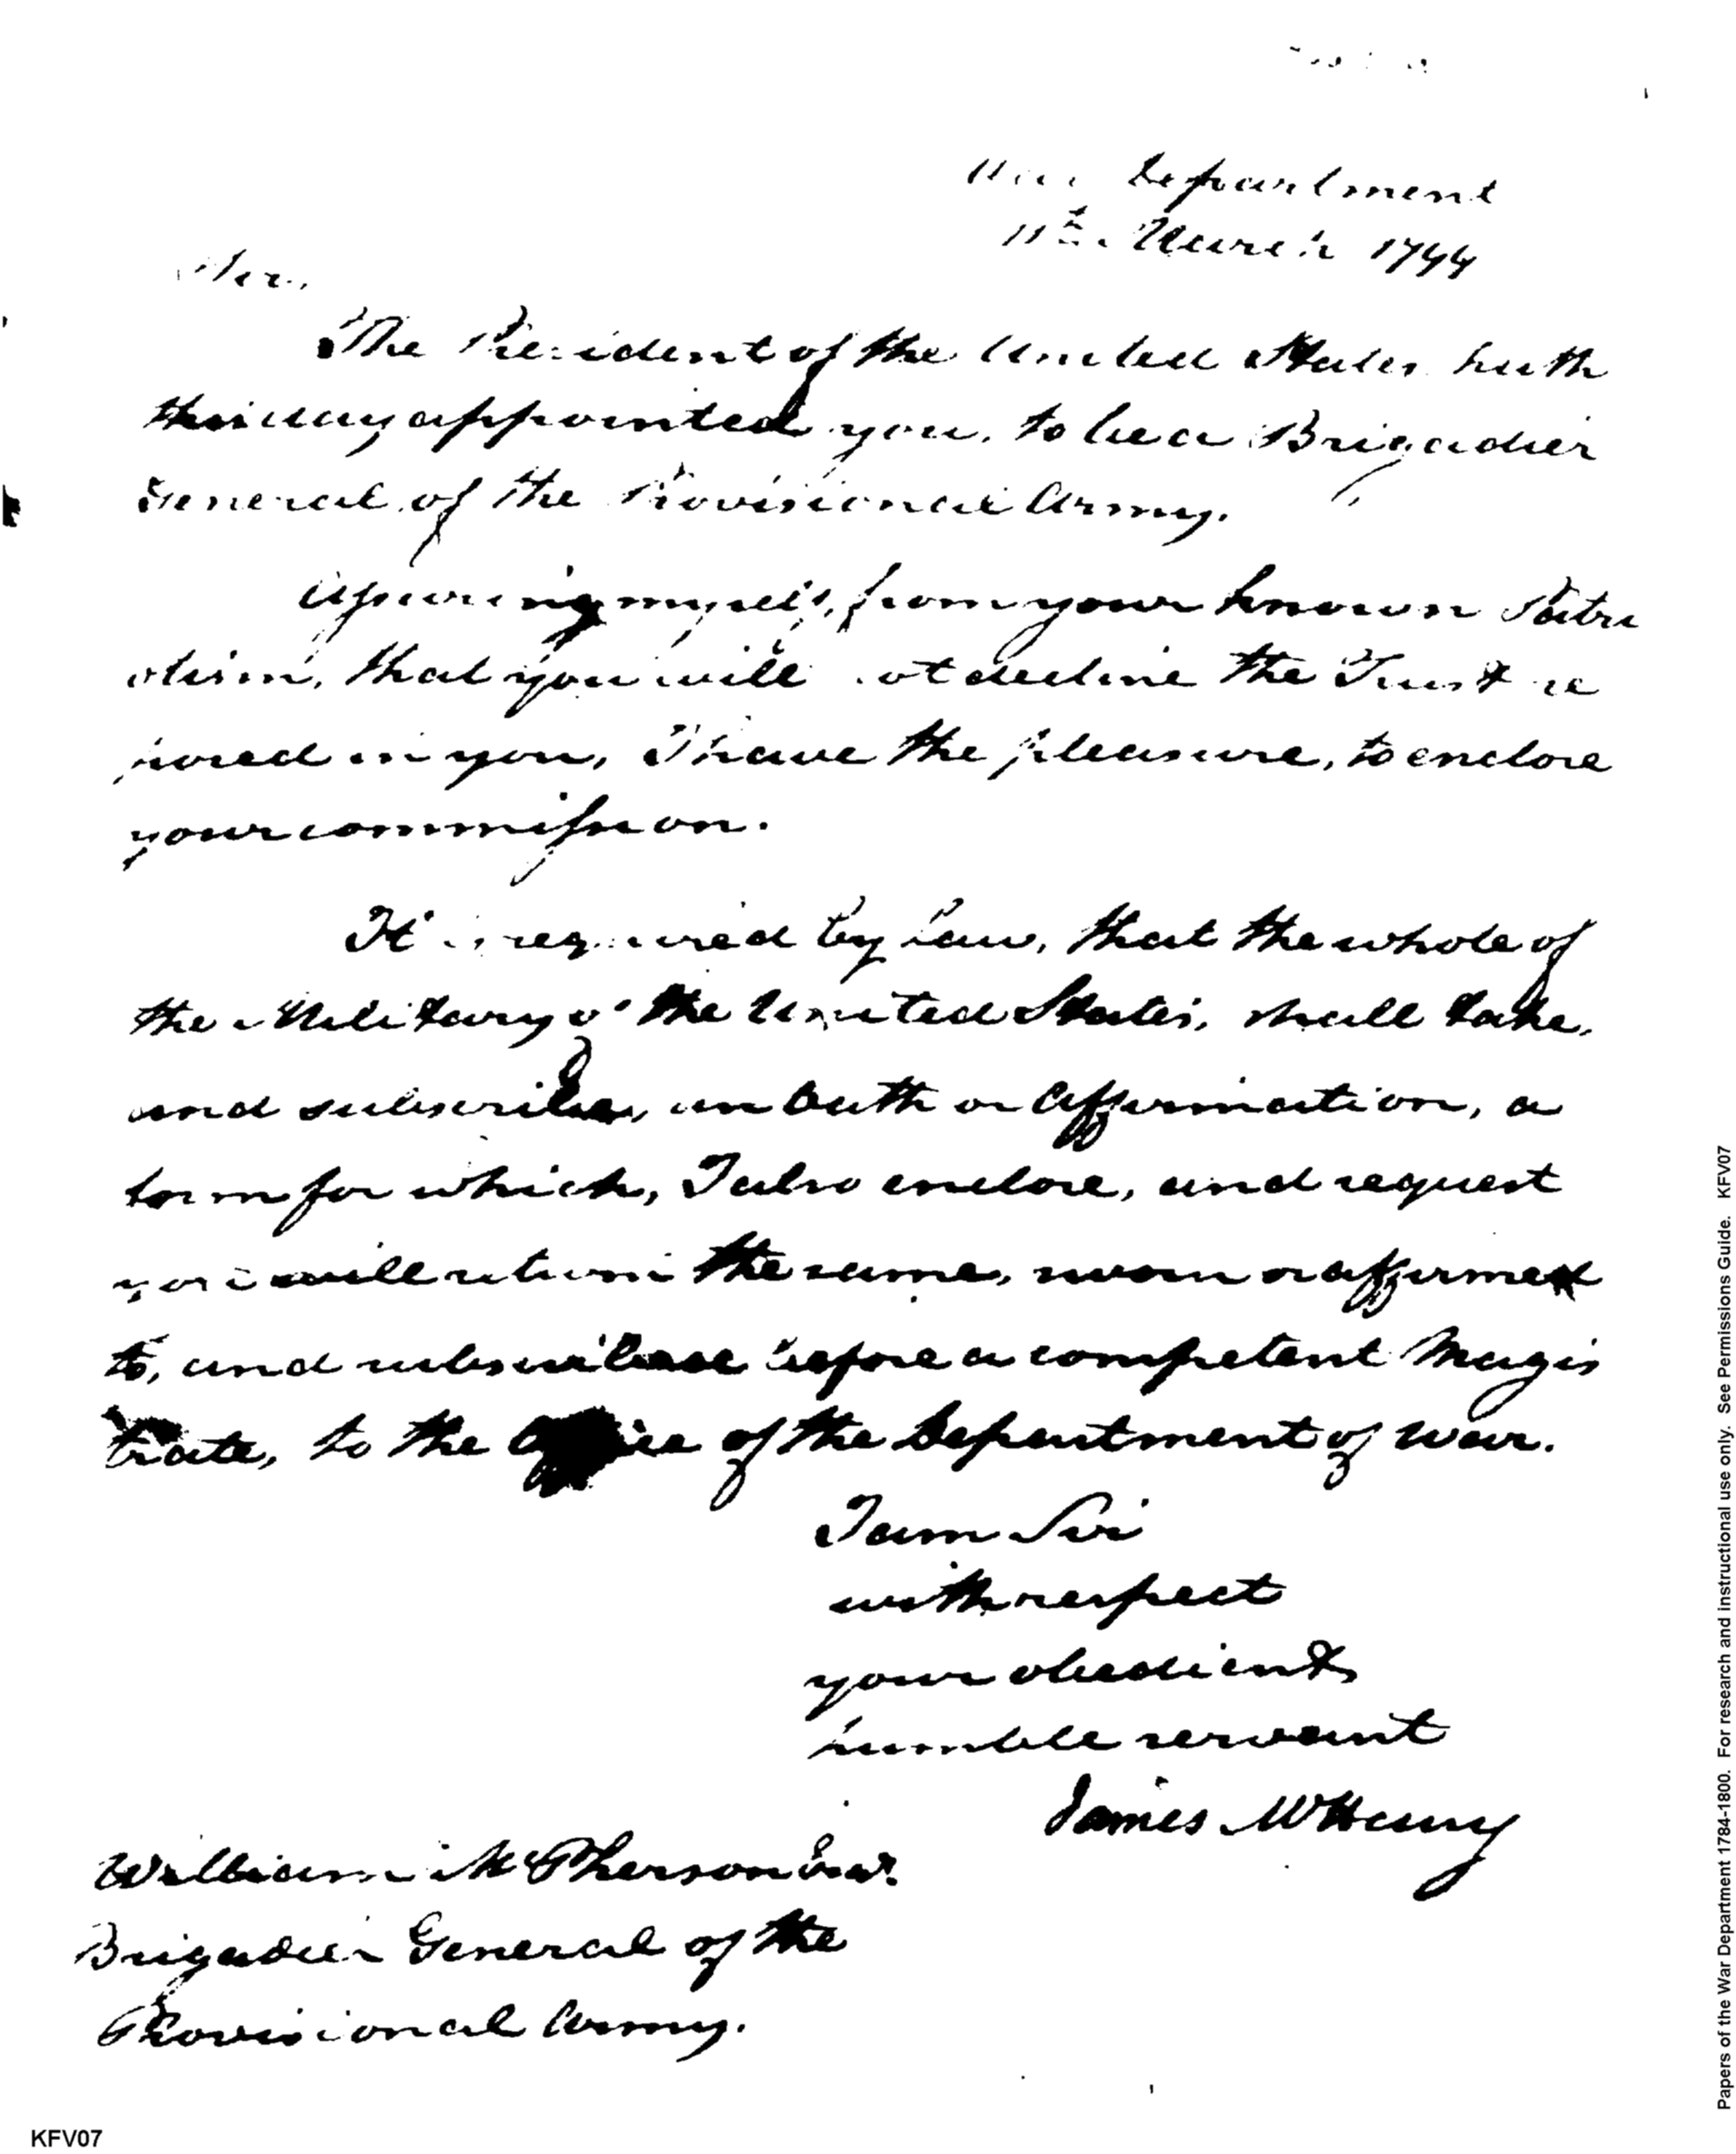 War Department
11th. March 1799
Sir,
The President of the United States hath
this day appointed you, to be a Brigadier
General of the Provisional Army.
Assuring myself, from your known Patri
otism, that you will not decline the Trust re
posed in you, I have the pleasure, to enclose
your commission.
It is required by law, that the whole of
the Military of the United States, shall take,
and subscribe, an Oath or Affirmation, a
form for which, I also enclose, and request
you will return the same, sworn or affirmed
to, and subscribed before a competent Magis
trate, to the Office of the Department of War.
I am Sir
with respect
your obedient
humble servant
James McHenry
William McPherson Esqr.
Brigadier General of the
Provisional Army.
KFV07
Papers of the War Department 1784-1800. For research and instructional use only. See Permissions Guide. KFV07